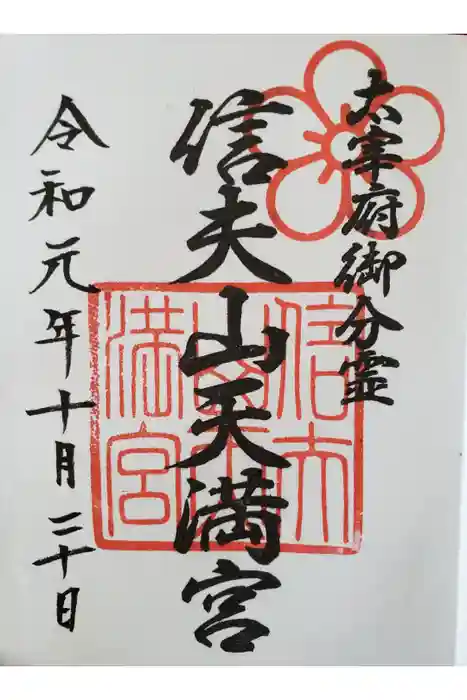 太宰府御分霊
信夫山天満宮
令和元年十月二十日
信夫
山天
満宮